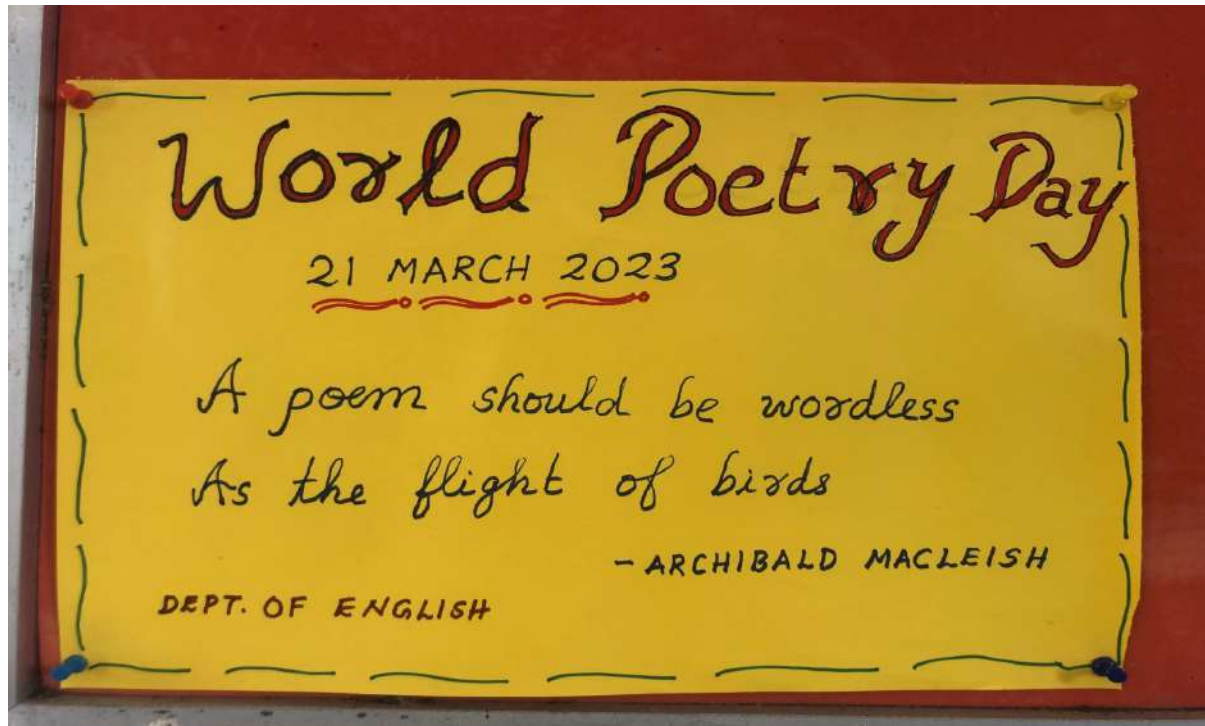 World Poetry Day
21 MARCH 2023
A poem should be wordless
As the flight of birds
- ARCHIBALD MACLEISH
DEPT. OF ENGLISH